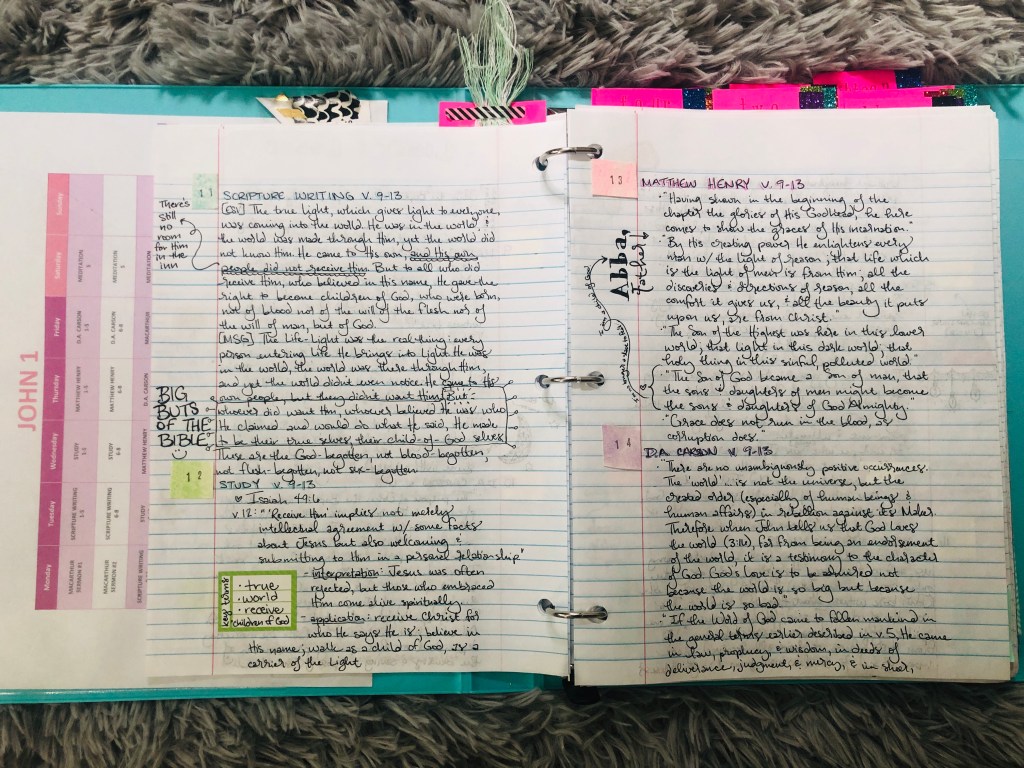 JOHN 1
Monday
Tuesday
Wednesday
Thursday
Friday
Saturday
Sunday
MACARTHUR SERMON #1
SCRIPTURE WRITING 1-5
STUDY 1-5
MATTHEW HENRY 1-5
D.A. CARSON 1-5
MEDITATION
MACARTHUR SERMON #2
SCRIPTURE WRITING 6-8
STUDY 6-8
MATTHEW HENRY 6-8
D.A. CARSON 6-8
MEDITATION
SCRIPTURE WRITING
STUDY
MATTHEW HENRY
D.A. CARSON
MACARTHUR
MEDITATION
11
There's
still
no
room
for Him
in the
inn
SCRIPTURE WRITING V. 9-13
[ESV] The true light, which gives light to everyone,
was coming into the world. He was in the world, &
the world was made through Him, yet the world did
not know Him. He came to His own, and His own
people did not receive Him. But to all who did
receive Him, who believed in His name, He gave the
right to become children of God, who were born,
not of blood nor of the will of the flesh nor of
the will of man, but of God.
[MSG] The Life-Light was the real thing: every
person entering Life He brings into Light. He was
in the world, the world was there through Him,
and yet the world didn't even notice. He came to His
own people, but they didn't want Him. But
whoever did want Him, whoever believed He was who
He claimed and would do what He said, He made
to be their true selves, their child-of-God selves.
These are the God-begotten, not blood-begotten,
not flesh-begotten, not sex-begotten
BIG
BUTS
OF THE
BIBLE
12
STUDY V. 9-13
♡ Isaiah 49:6
v.12: "'Receive Him' implies not merely
intellectual agreement w/ some facts
about Jesus but also welcoming &
submitting to Him in a personal relationship"
- interpretation: Jesus was often
rejected, but those who embraced
Him come alive spiritually
- application: receive Christ for
who He says He is; believe in
His name; walk as a child of God, as a
carrier of the Light
key terms
· true
· world
· receive
· children of God
13
MATTHEW HENRY V. 9-13
· "Having shown in the beginning of the
chapter the glories of His Godhead, he here
comes to show the graces of His incarnation."
· "By His creating power He enlightens every
man w/ the light of reason; that life which
is the light of men is from Him; all the
discoveries & directions of reason, all the
comfort it gives us, & all the beauty it puts
upon us, are from Christ."
· "The Son of the Highest was here in this lower
world; that light in this dark world; that
holy thing in this sinful polluted world."
· "The Son of God became a Son of man, that
the sons & daughters of men might become
the sons & daughters of God Almighty."
· "Grace does not run in the blood, as
corruption does."
Abba,
Father!
14
D.A. CARSON V. 9-13
· "There are no unambiguously positive occurrences.
The 'world'... is not the universe, but the
created order (especially of human beings &
human affairs) in rebellion against its Maker.
Therefore when John tells us that God loves
the world (3:16), far from being an endorsement
of the world, it is a testimony to the character
of God. God's love is to be admired not
because the world is so big but because
the world is so bad."
· "If the Word of God came to fallen mankind in
the general terms earlier described in v.5, He came
in law, prophecy, & wisdom, in deeds of
deliverance, judgment, & mercy, & in sheer,